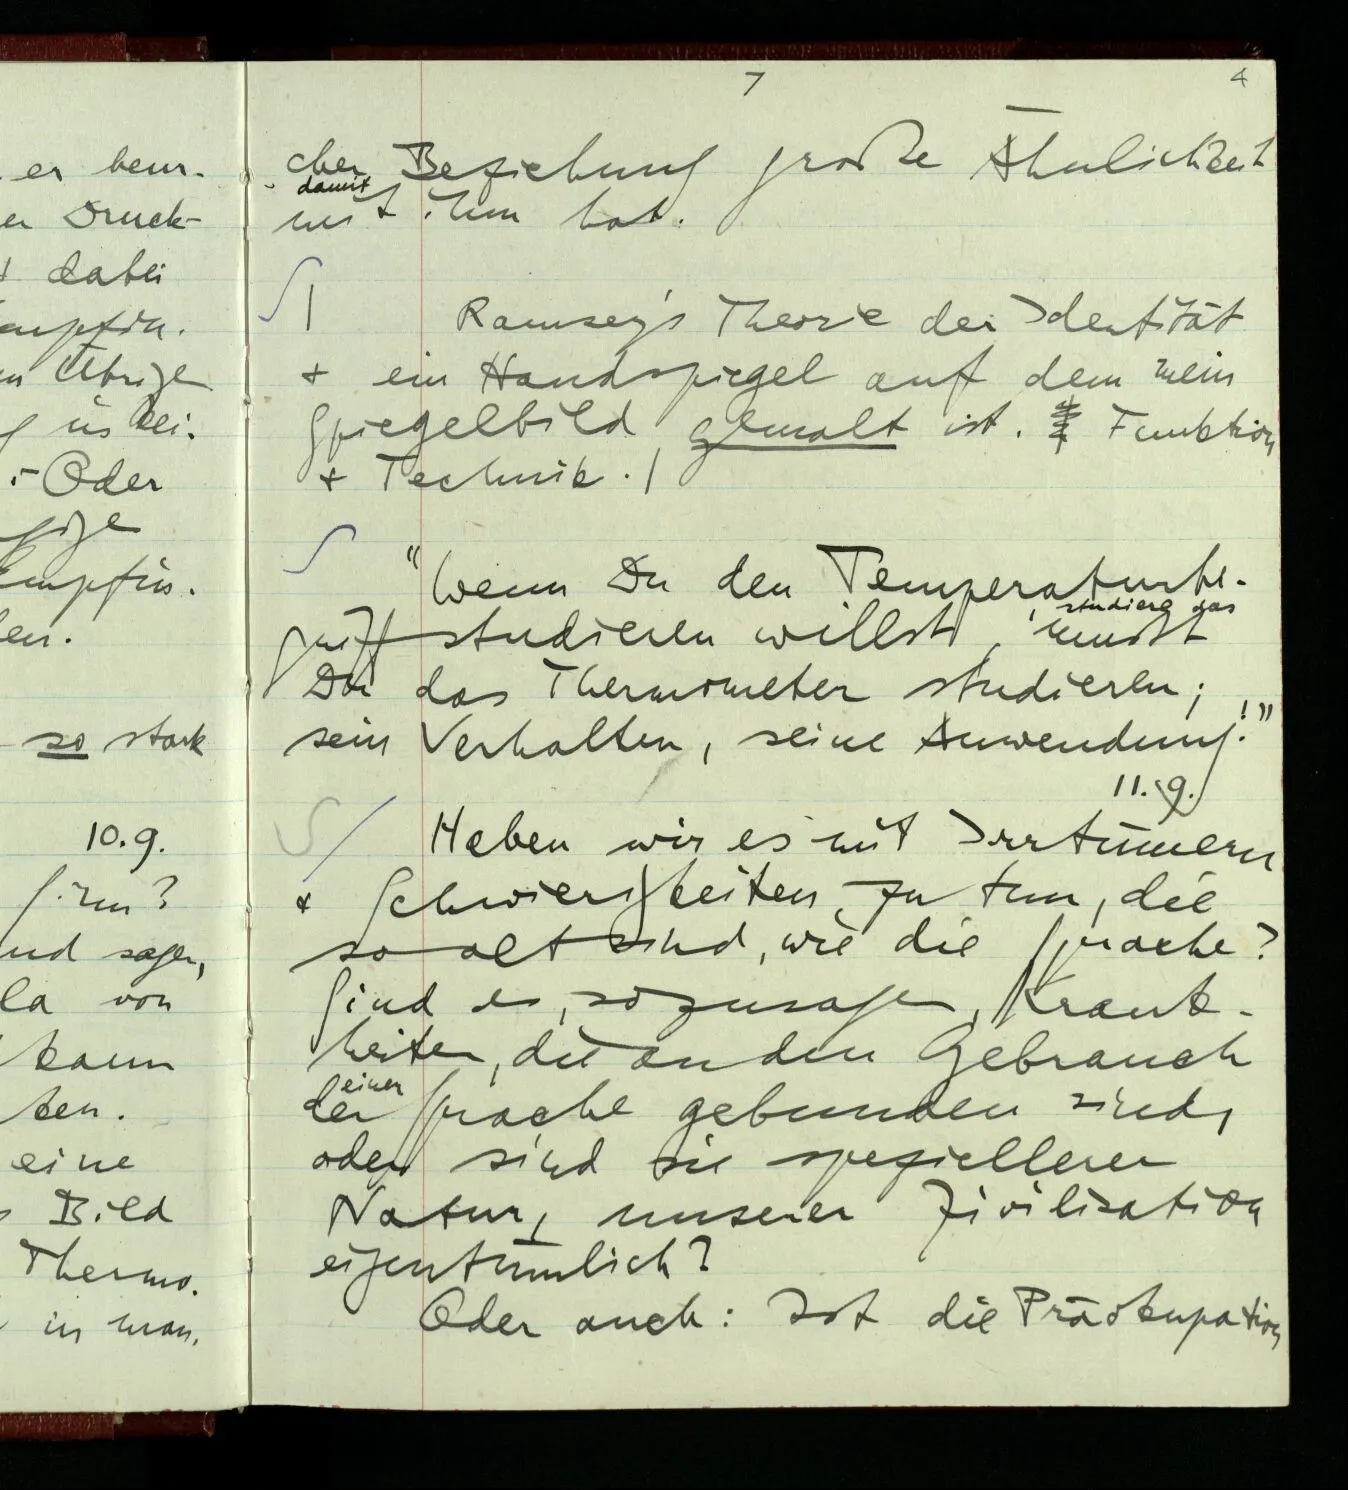 er beur-
er Druck-
+ dabei
empfin-
m Übrige
-Oder
Empfin-
so stark
10.9.
und sagen,
la von
kann
ten.
eine
Bild
Thermo-
in man-
7
4
cher Beziehung große Ähnlichkeit
damit
mit ihm hat.
∫ | Ramsey's Theorie der Identität
+ ein Handspiegel auf dem mein
Spiegelbild gemalt ist. Funktion
+ Technik. |
∫ "Wenn Du den Temperaturbe-
studiere das
griff studieren willst, mußt
Du das Thermometer studieren;
sein Verhalten, seine Anwendung!"
11.9.
∫ / Haben wir es mit Irrtümern
+ Schwierigkeiten zu tun, die
so alt sind, wie die Sprache?
Sind es, sozusagen, Krank-
heiten, die an den Gebrauch
einer
der Sprache gebunden sind,
oder sind sie speziellerer
Natur, unserer Zivilisation
eigentümlich?
Oder auch: Ist die Präokupation